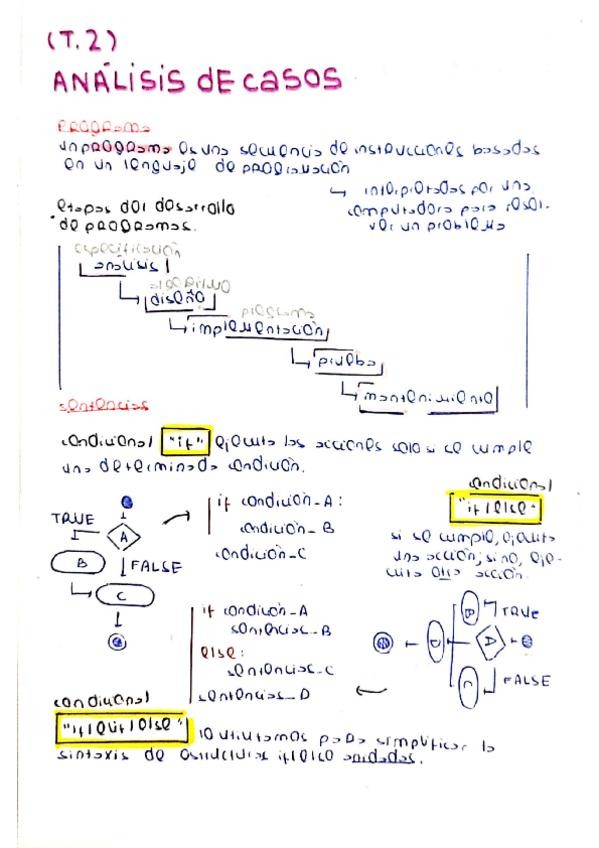 (T.2)
ANÁLISIS DE CASOS
PROGRAMA
un PROGRAMA es una secuencia de instrucciones basadas
en un lenguaje de PROGRAMACIÓN
↳ interpretadas por una
computadora para resol-
ver un problema
etapas del desarrollo
de PROGRAMAS.
especificación
análisis
algoritmo
diseño
programa
implementación
prueba
mantenimiento
sentencias
condicional "if" ejecuta las acciones solo si se cumple
una determinada condición.
TRUE
A
B
FALSE
C
if condición_A:
condición_B
condición_C
condicional
"if/else"
si se cumple, ejecuta
una acción; si no, eje-
cuta otra acción.
if condición_A
sentencias_B
else:
sentencias_C
sentencias_D
B
TRUE
D
A
C
FALSE
condicional
"if/elif/else"
lo utilizamos para simplificar la
sintaxis de estructuras if/else anidadas.